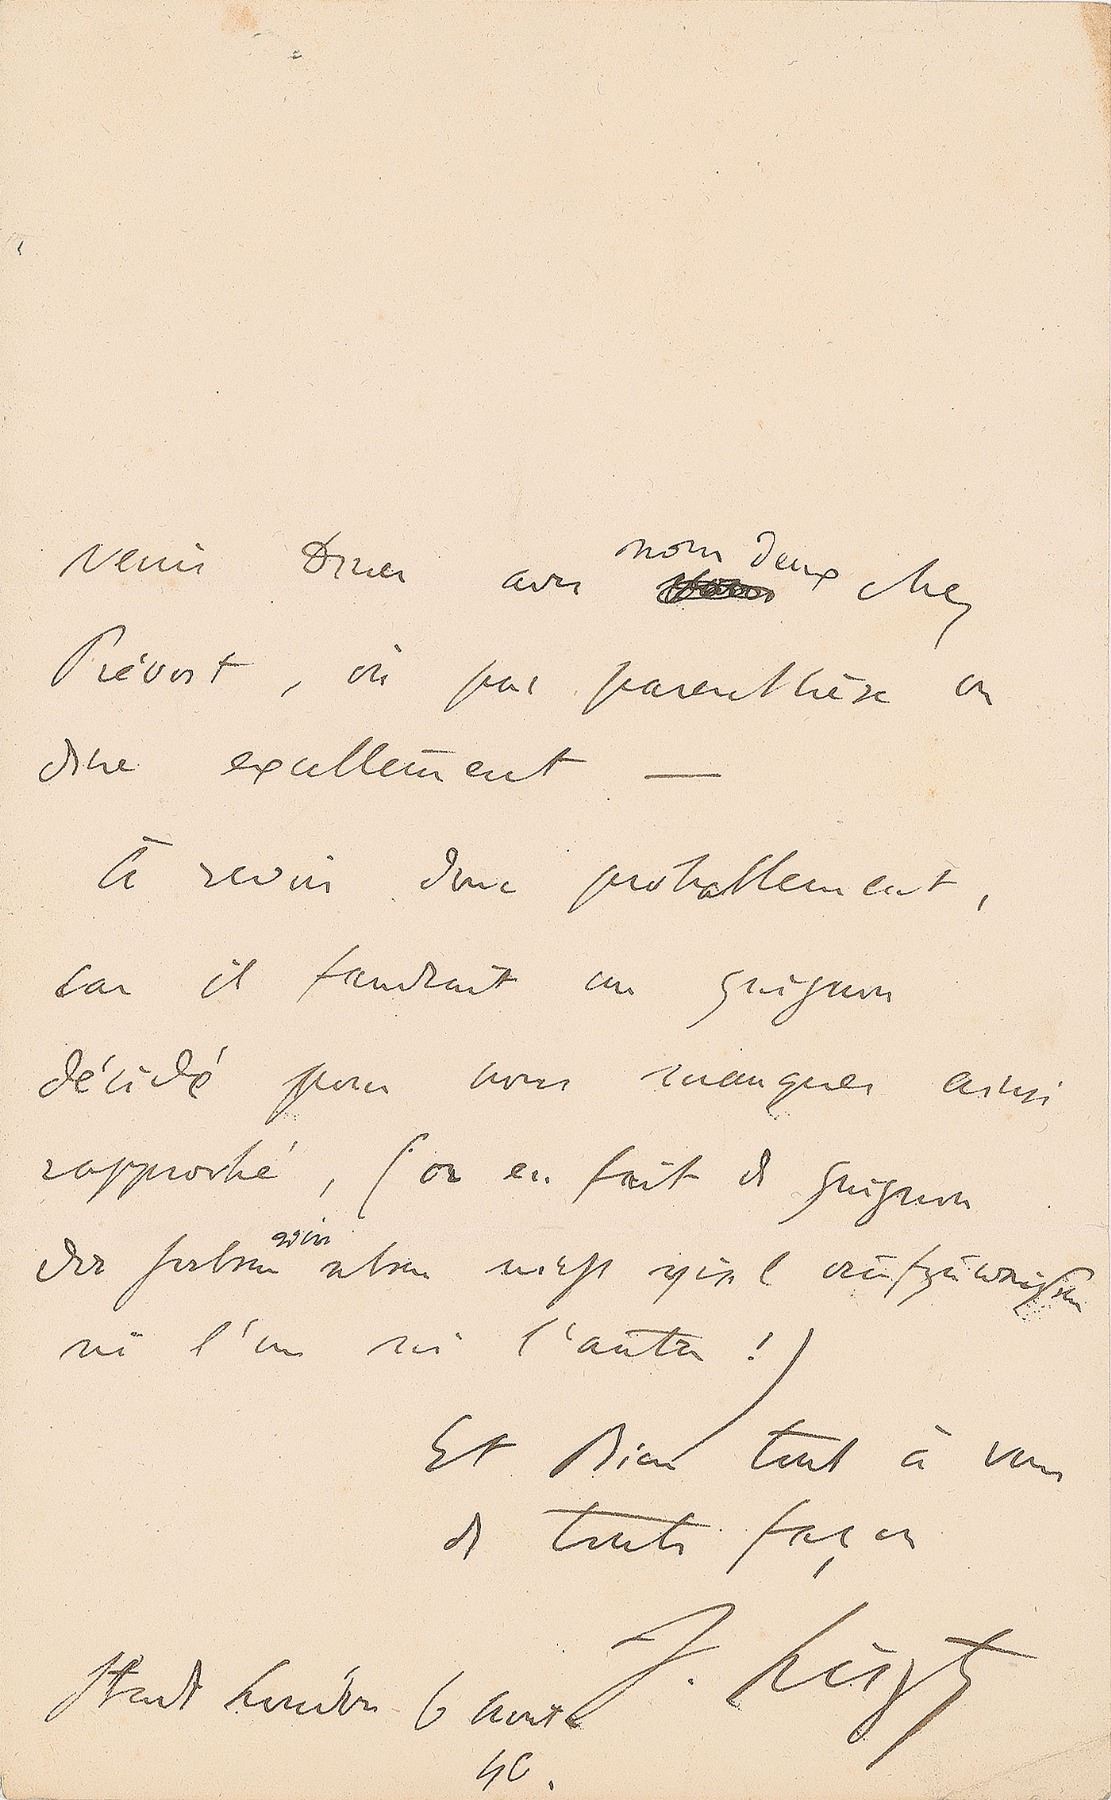 venir diner avec nous deux chez
Prévost, où par parenthèse on
dine excellement —
à revoir donc probablement,
car il faudrait un guignon
décidé pour nous manquer ainsi
rapproché, (or en fait de guignon
wir
da haben eben nicht viel aufzuweisen
ni l'un ni l'autre !)
Et bien tout à vous
de toute façon
F. Liszt
Stadt London 6 Août
46.